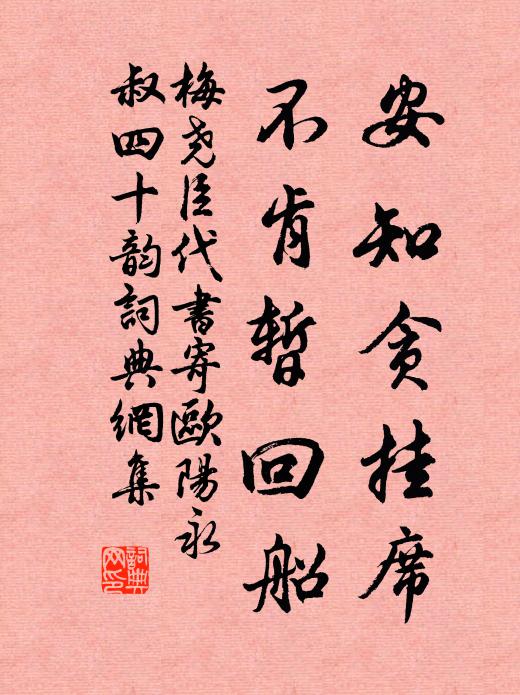 安知贪挂席
不肯暂回船
梅尧臣代書寄歐陽永
叔四十韵詞典網集
詞典
网印